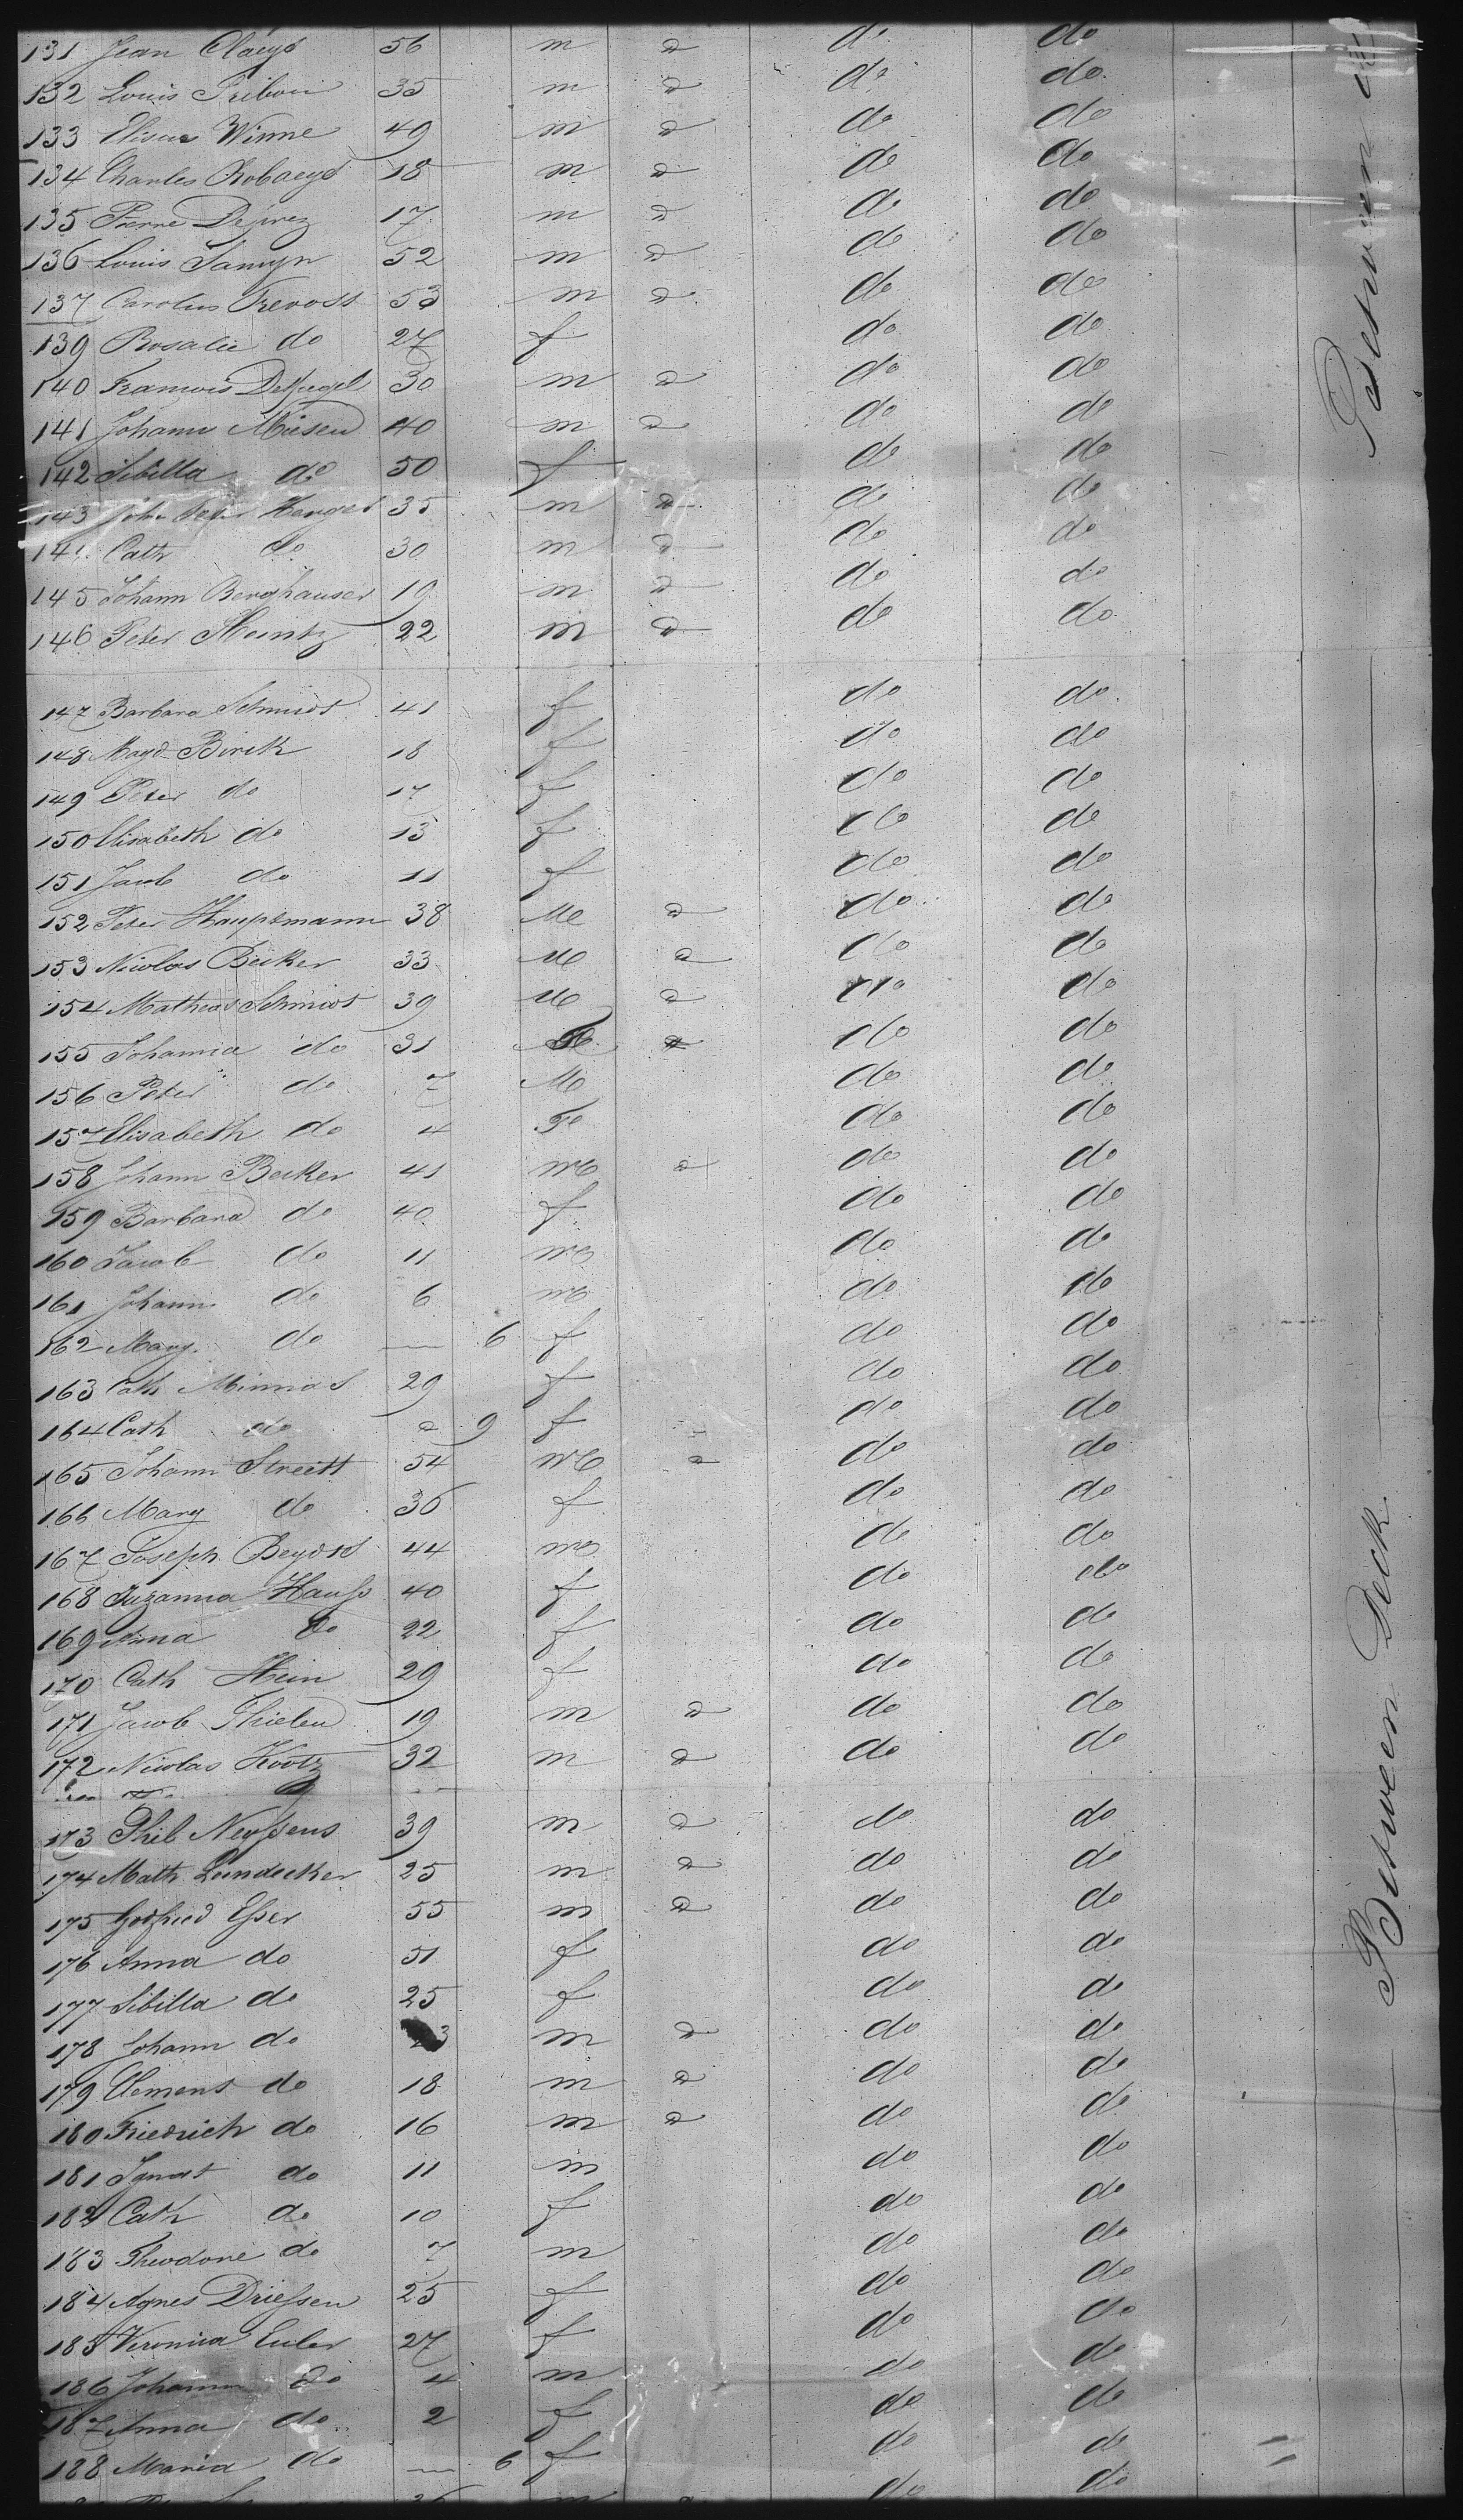 131 Jean Claeys 56 m a do do
132 Louis Tribou 35 m a do do
133 Elisue Winne 49 m a do do
134 Charles Robaeys 18 m a do do
135 Pierre Deprez 17 m a do do
136 Louis Samyn 52 m a do do
137 Carolus Trevoss 53 m a do do
139 Rosalie do 27 f do do
140 Francois 30 m a do do
141 Johann Miesen 40 m a do do
142 Sibilla do 50 f do do
143 Joh. Peter Henges 35 m a do do
144 Cath do 30 m a do do
145 Johann Berghauser 19 m a do do
146 Peter Heintz 22 m a do do
147 Barbara Schmidt 41 f do do
148 Magd Birck 18 f do do
149 Peter do 17 f do do
150 Elisabeth do 13 f do do
151 Jacob do 11 f do do
152 Peter Hauptmann 38 M a do do
153 Nicolas Becker 33 M a do do
154 Mathias Schmidt 39 M a do do
155 Johanna do 31 F do do
156 Peter do 7 M do do
157 Elisabeth do 4 F do do
158 Johann Becker 41 m a do do
159 Barbara do 40 f do do
160 Jacob do 11 m do do
161 Johann do 6 m do do
162 Marg. do — 6 f do do
163 Cath Minnas 29 f do do
164 Cath do 9 f do do
165 Johann Streitt 54 m a do do
166 Marg do 36 f do do
167 Joseph 44 m do do
168 Suzanna 40 f do do
169 Anna do 22 f do do
170 Cath Hein 29 f do do
171 Jacob Thielen 19 m a do do
172 Nicolas Kootz 32 m a do do
173 Phil Neyssens 39 m a do do
174 Math Leindecker 25 m a do do
175 Godfried Esser 55 m a do do
176 Anna do 51 f do do
177 Sibilla do 25 f do do
178 Johann do 23 m a do do
179 Clemens do 18 m a do do
180 Friedrich do 16 m a do do
181 Ignat do 11 m do do
182 Cath do 10 f do do
183 Theodore do 7 m do do
184 Agnes Driessen 25 f do do
185 Veronica Euler 27 f do do
186 Johann do 4 m do do
187 Anna do 2 f do do
188 Maria do — 6 f do do
do do
Between Deck
Between